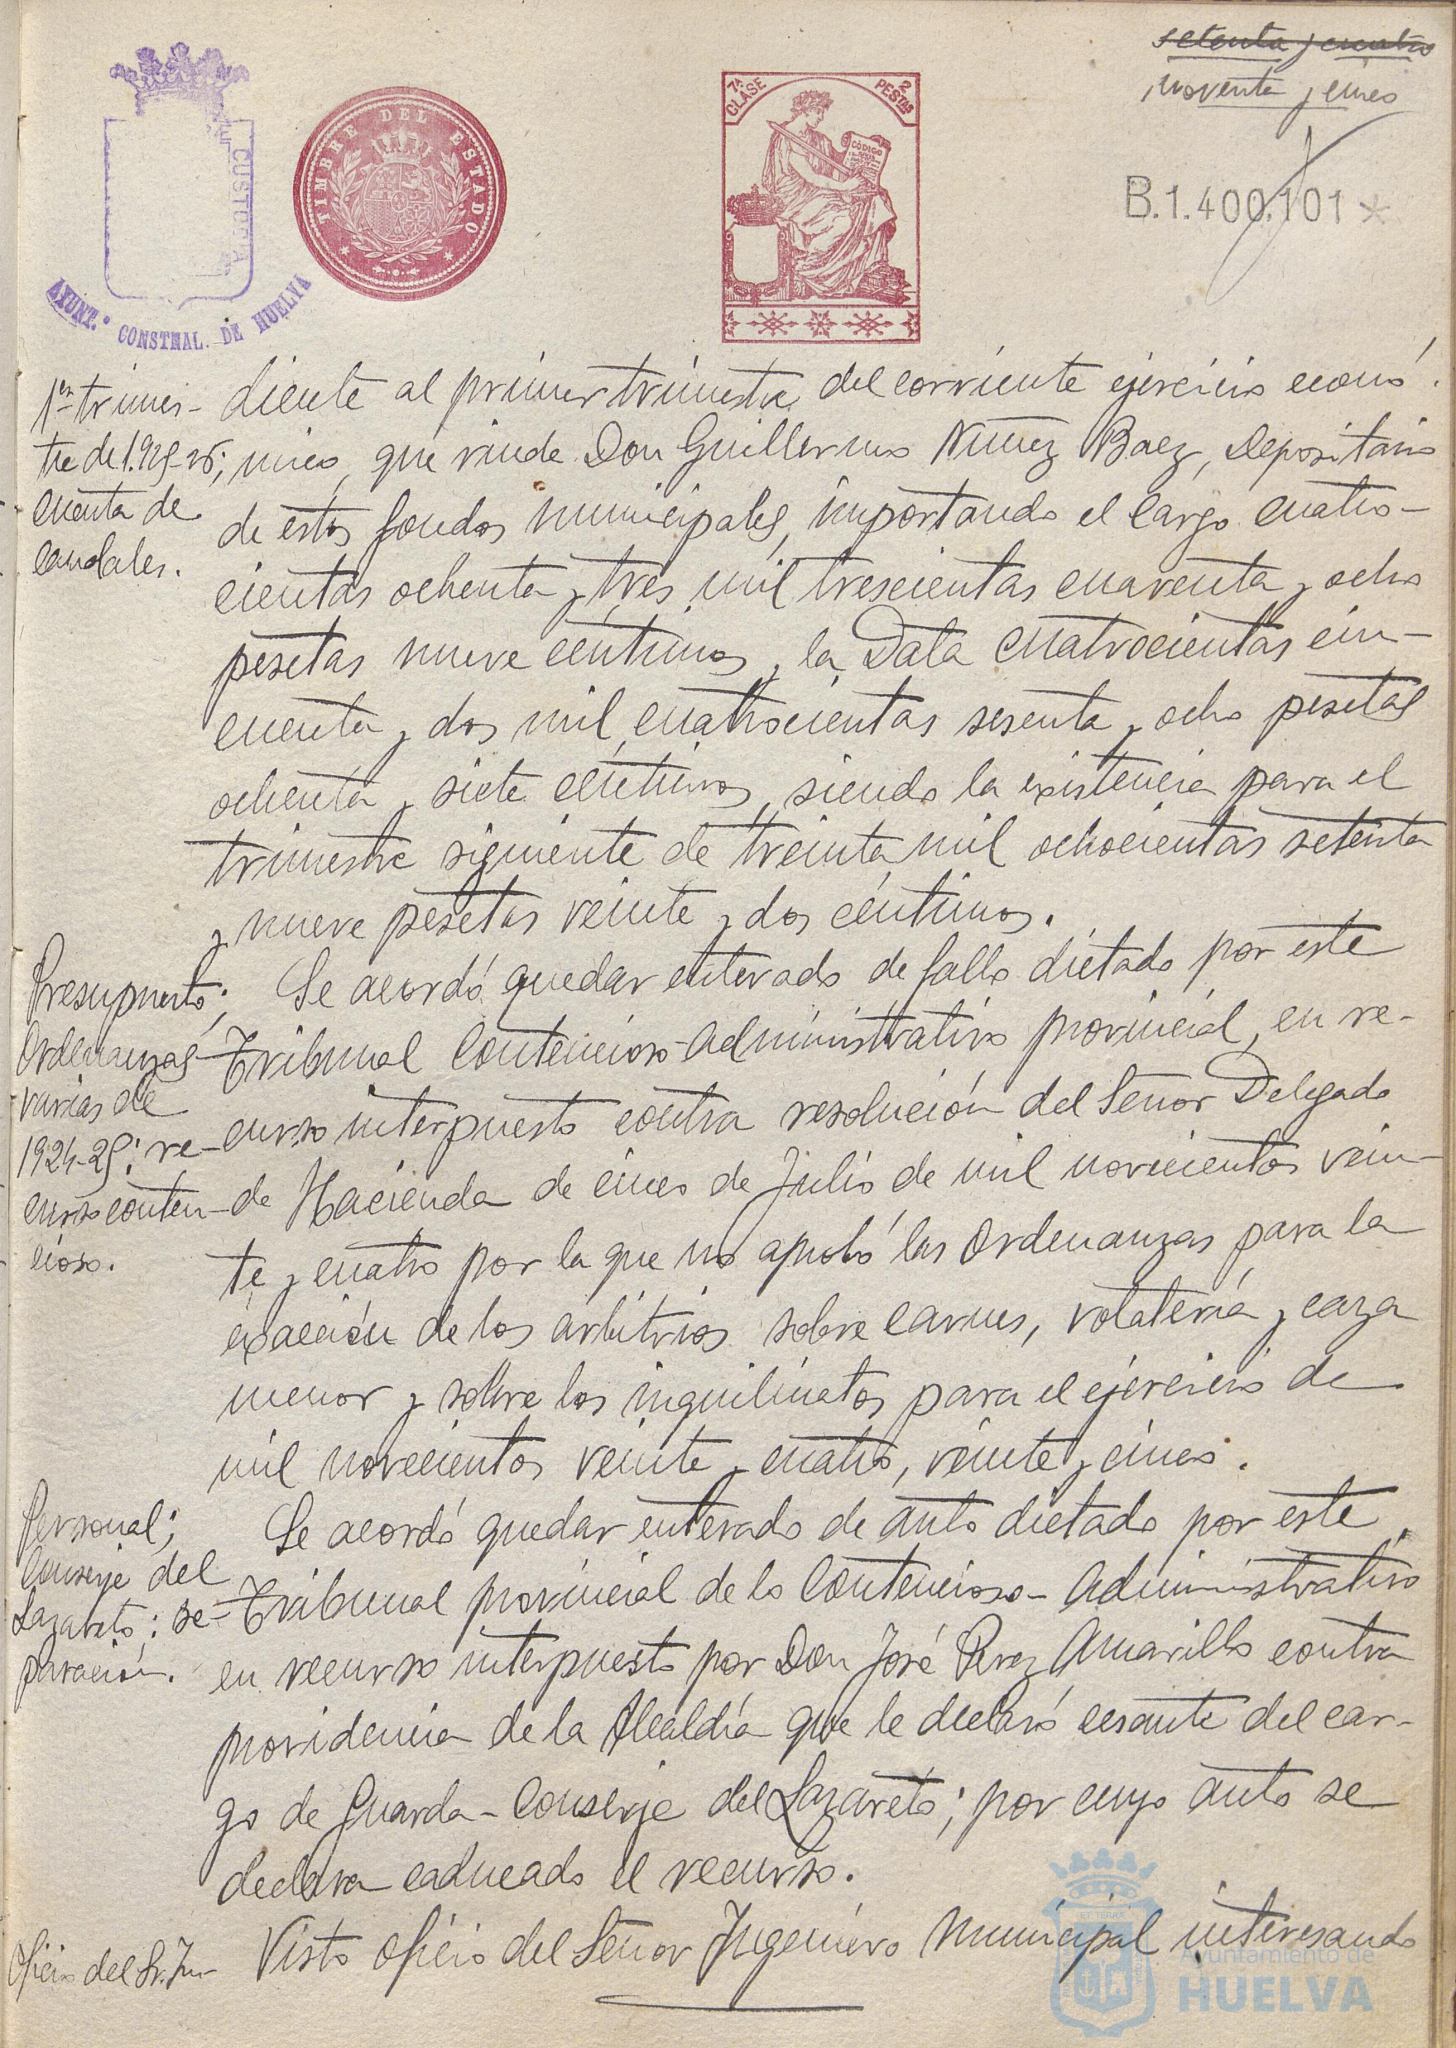 setenta y cuatro
noventa y cinco
CUSTODIA
AYUNT.º CONSTNAL. DE HUELVA
TIMBRE DEL ESTADO
7ª CLASE
2 PESTAS
CÓDIGO
B.1.400.101*
1er trimes-
tre de 1.925-26;
cuenta de
caudales.
diente al primer trimestre del corriente ejercicio econó-
mico, que rinde Don Guillermo Nuñez Baez, Depositario
de estos fondos municipales, importando el cargo cuatro-
cientas ochenta y tres mil trescientas cuarenta y ocho
pesetas nueve céntimos y la Data cuatrocientas cin-
cuenta y dos mil cuatrocientas sesenta y ocho pesetas
ochenta y siete céntimos, siendo la existencia para el
trimestre siguiente de treinta mil ochocientas setenta
y nueve pesetas veinte y dos céntimos.
Presupuesto;
Ordenanzas
varias de
1924-25; re-
curso conten-
cioso.
Se acordó quedar enterado de fallo dictado por este
Tribunal Contencioso-administrativo provincial, en re-
curso interpuesto contra resolución del Señor Delegado
de Hacienda de cinco de Julio de mil novecientos vein-
te y cuatro por la que no aprobó las Ordenanzas para la
exacción de los arbitrios sobre carnes, volatería y caza
menor y sobre los inquilinatos para el ejercicio de
mil novecientos veinte y cuatro, veinte y cinco.
Personal;
Conserje del
Lazareto; se-
paración.
Se acordó quedar enterado de auto dictado por este
Tribunal provincial de lo Contencioso-Administrativo
en recurso interpuesto por Don José Perez Amarillo contra
providencia de la Alcaldía que le declaró cesante del car-
go de Guarda-Conserje del Lazareto; por cuyo auto se
declara caducado el recurso.
Oficio del Sr. In-
Visto oficio del Señor Ingeniero Municipal interesando
Ayuntamiento de
HUELVA